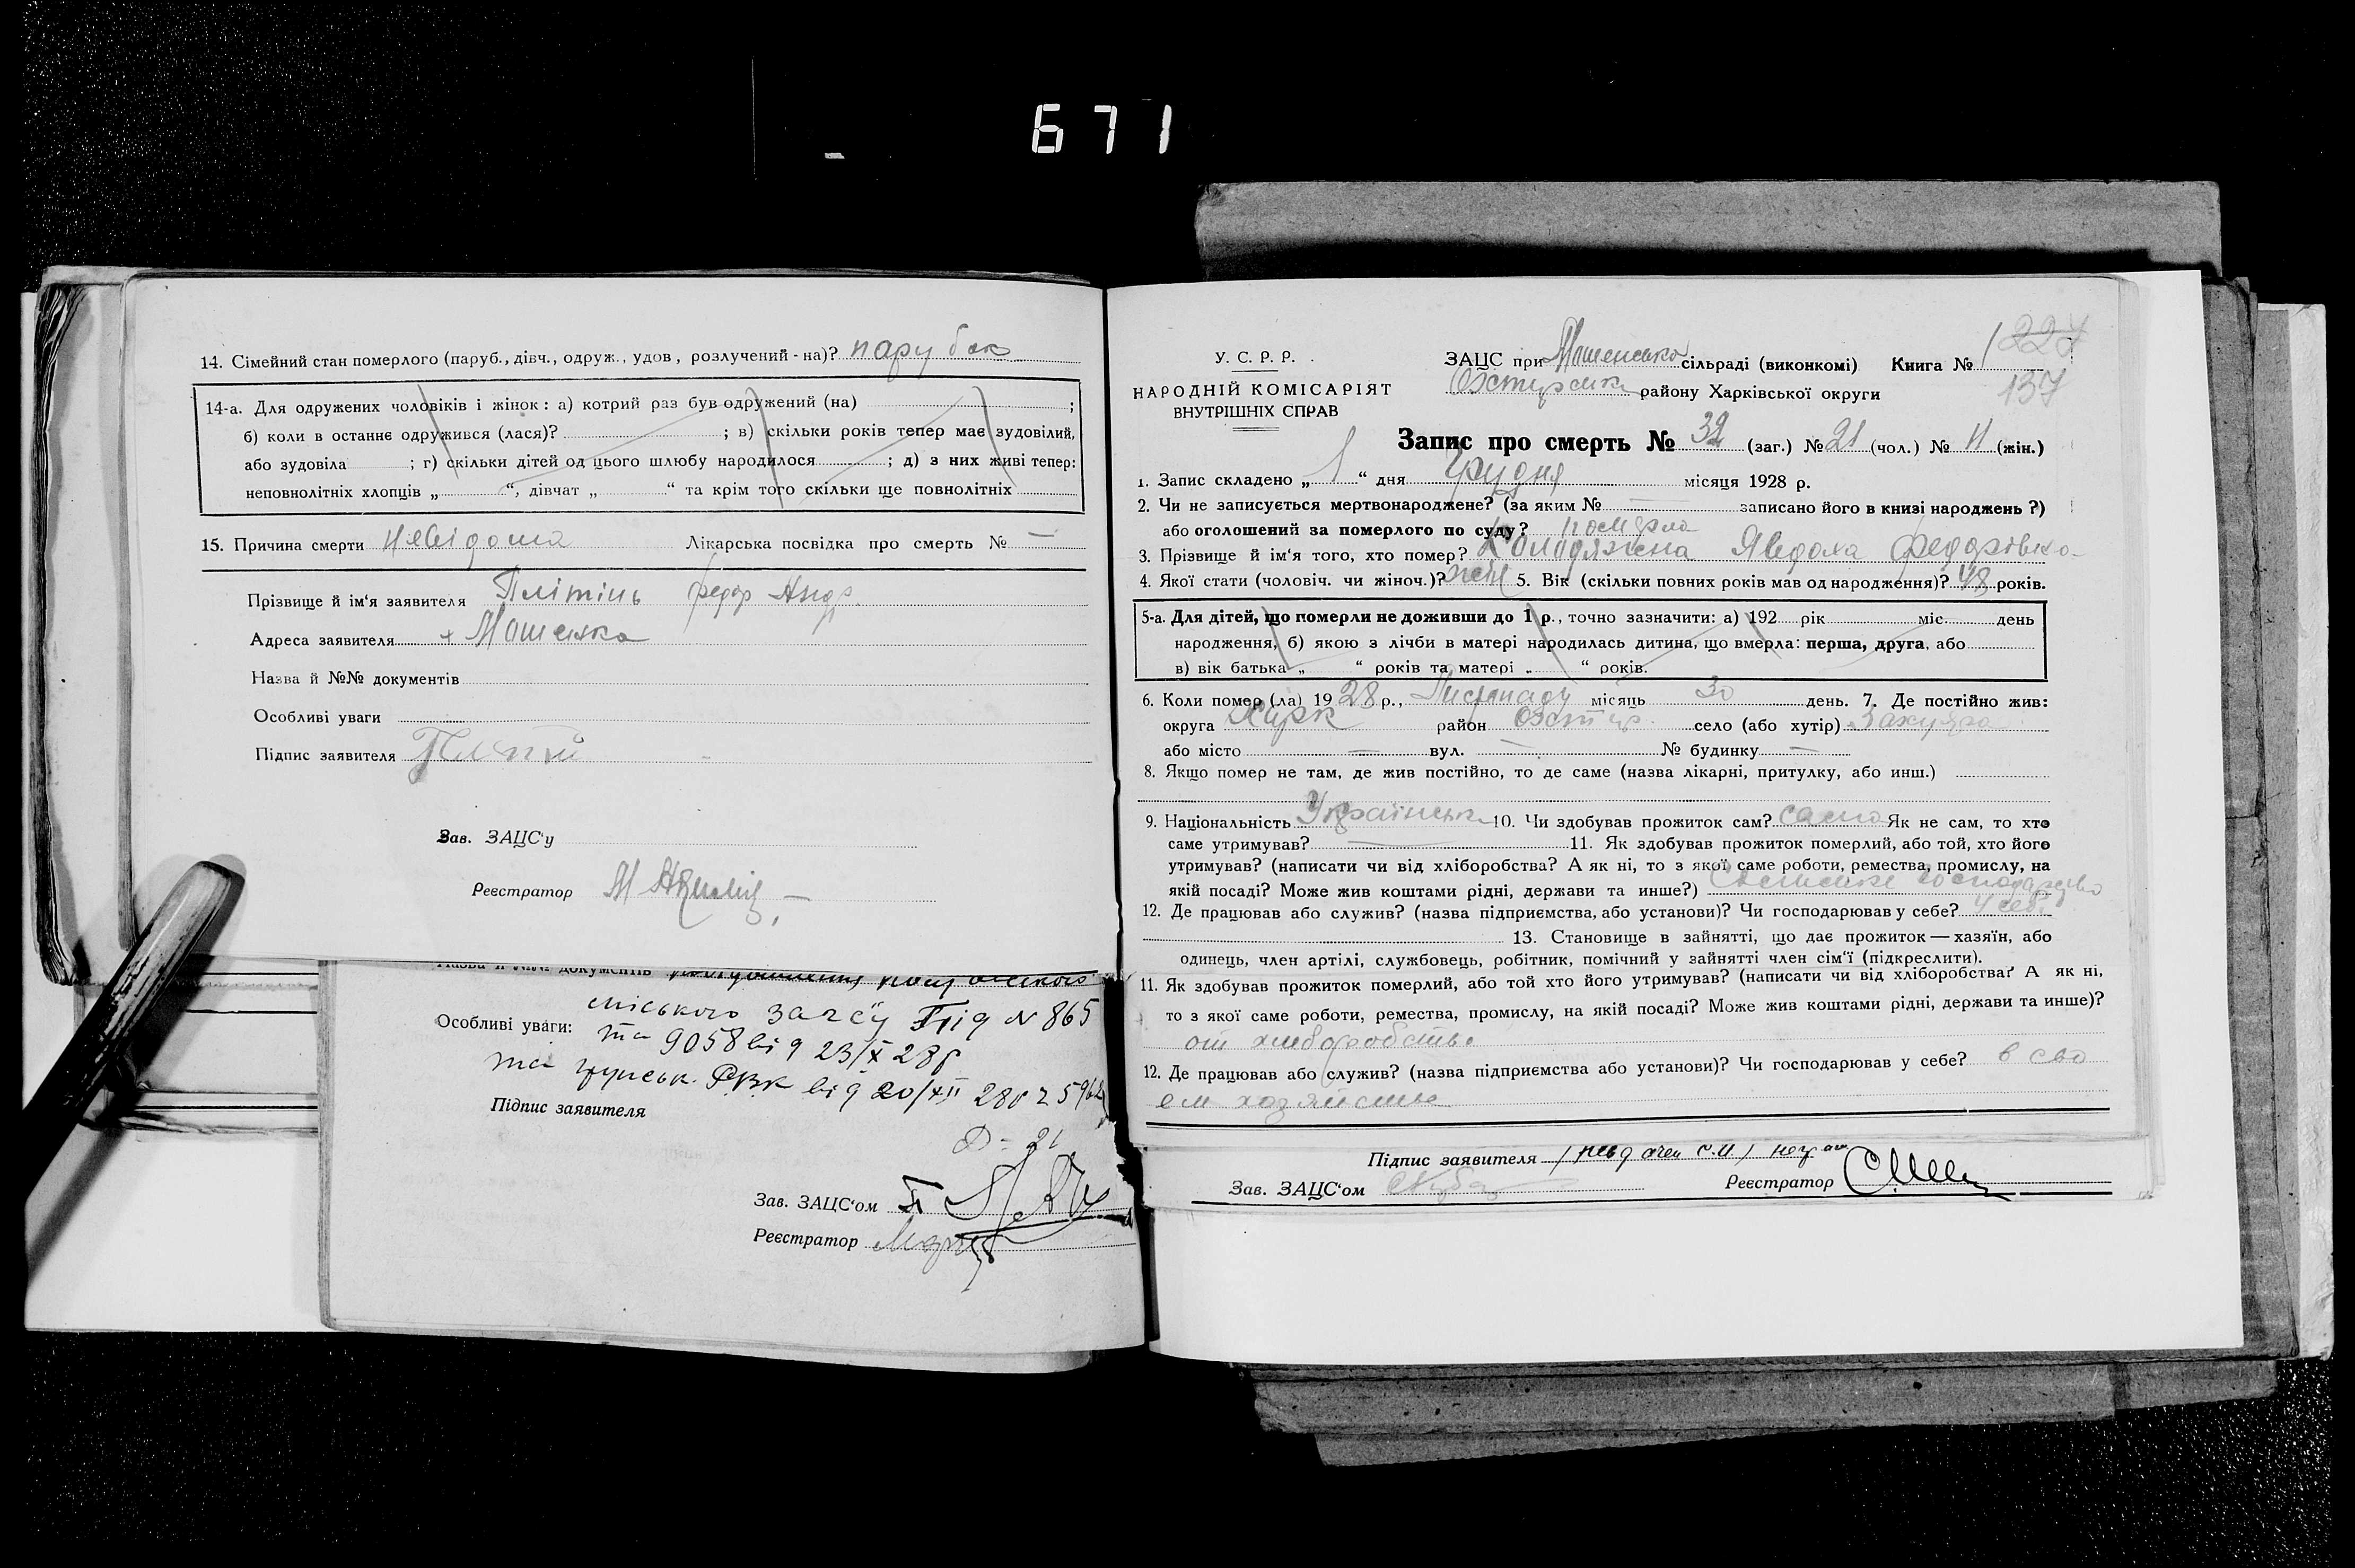 671
14. Сімейний стан померлого (паруб., дівч., одруж., удов, розлучений-на)? парубок
14-а. Для одружених чоловіків і жінок: а) котрий раз був одружений (на) ;
б) коли в останнє одружився (лася)? ; в) скільки років тепер має зудовілий,
або зудовіла ; г) скільки дітей од цього шлюбу народилося ; д) з них живі тепер:
неповнолітніх хлопців „ “, дівчат „ “ та крім того скільки ще повнолітніх
15. Причина смерти невідома Лікарська посвідка про смерть № —
Прізвище й ім'я заявителя Плітінь Федор Андр.
Адреса заявителя Мошенка
Назва й №№ документів
Особливі уваги
Підпис заявителя
Зав. ЗАЦС'у
Реєстратор
Назва й №№ документів
Особливі уваги: міського загсу під N 865
та 9058 від 23/X 28р
та РВК від 20/XII 28р
Підпис заявителя
Зав. ЗАЦС'ом
Реєстратор
У. С. Р. Р.
НАРОДНІЙ КОМІСАРІЯТ
ВНУТРІШНІХ СПРАВ
ЗАЦС при Мошенська сільраді (виконкомі) Книга № 1 227
Охтирськ району Харківської округи 137
Запис про смерть № 32 (заг.) № 21 (чол.) № 11 (жін.)
1. Запис складено „ 1 “ дня Грудня місяця 1928 р.
2. Чи не записується мертвонароджене? (за яким № — записано його в книзі народжень?)
або оголошений за померлого по суду? померла
3. Прізвище й ім'я того, хто помер? Колодяжна Явдоха Федорівна
4. Якої стати (чоловіч. чи жіноч.)? жін 5. Вік (скільки повних років мав од народження)? 48 років.
5-а. Для дітей, що померли не доживши до 1 р., точно зазначити: а) 192 рік міс. день
народження, б) якою з лічби в матері народилась дитина, що вмерла: перша, друга, або
в) вік батька „ “ років та матері „ “ років.
6. Коли помер (ла) 1928 р., Листопаду місяць 30 день. 7. Де постійно жив:
округа Харк район Охтир. село (або хутір)
або місто — вул. — № будинку —
8. Якщо помер не там, де жив постійно, то де саме (назва лікарні, притулку, або инш.)
9. Національність Українськ 10. Чи здобував прожиток сам? сама Як не сам, то хто
саме утримував? — 11. Як здобував прожиток померлий, або той, хто його
утримував? (написати чи від хліборобства? А як ні, то з якої саме роботи, ремества, промислу, на
якій посаді? Може жив коштами рідні, держави та инше?) Сільське господарство
12. Де працював або служив? (назва підприємства, або установи)? Чи господарював у себе? у себе
13. Становище в зайнятті, що дає прожиток — хазяїн, або
одинець, член артілі, службовець, робітник, помічний у зайнятті член сім'ї (підкреслити).
11. Як здобував прожиток померлий, або той хто його утримував? (написати чи від хліборобства? А як ні,
то з якої саме роботи, ремества, промислу, на якій посаді? Може жив коштами рідні, держави та инше)?
от хлеборобства
12. Де працював або служив? (назва підприємства або установи)? Чи господарював у себе? в сво
ем хозяистве
Підпис заявителя
Зав. ЗАЦС'ом Реєстратор